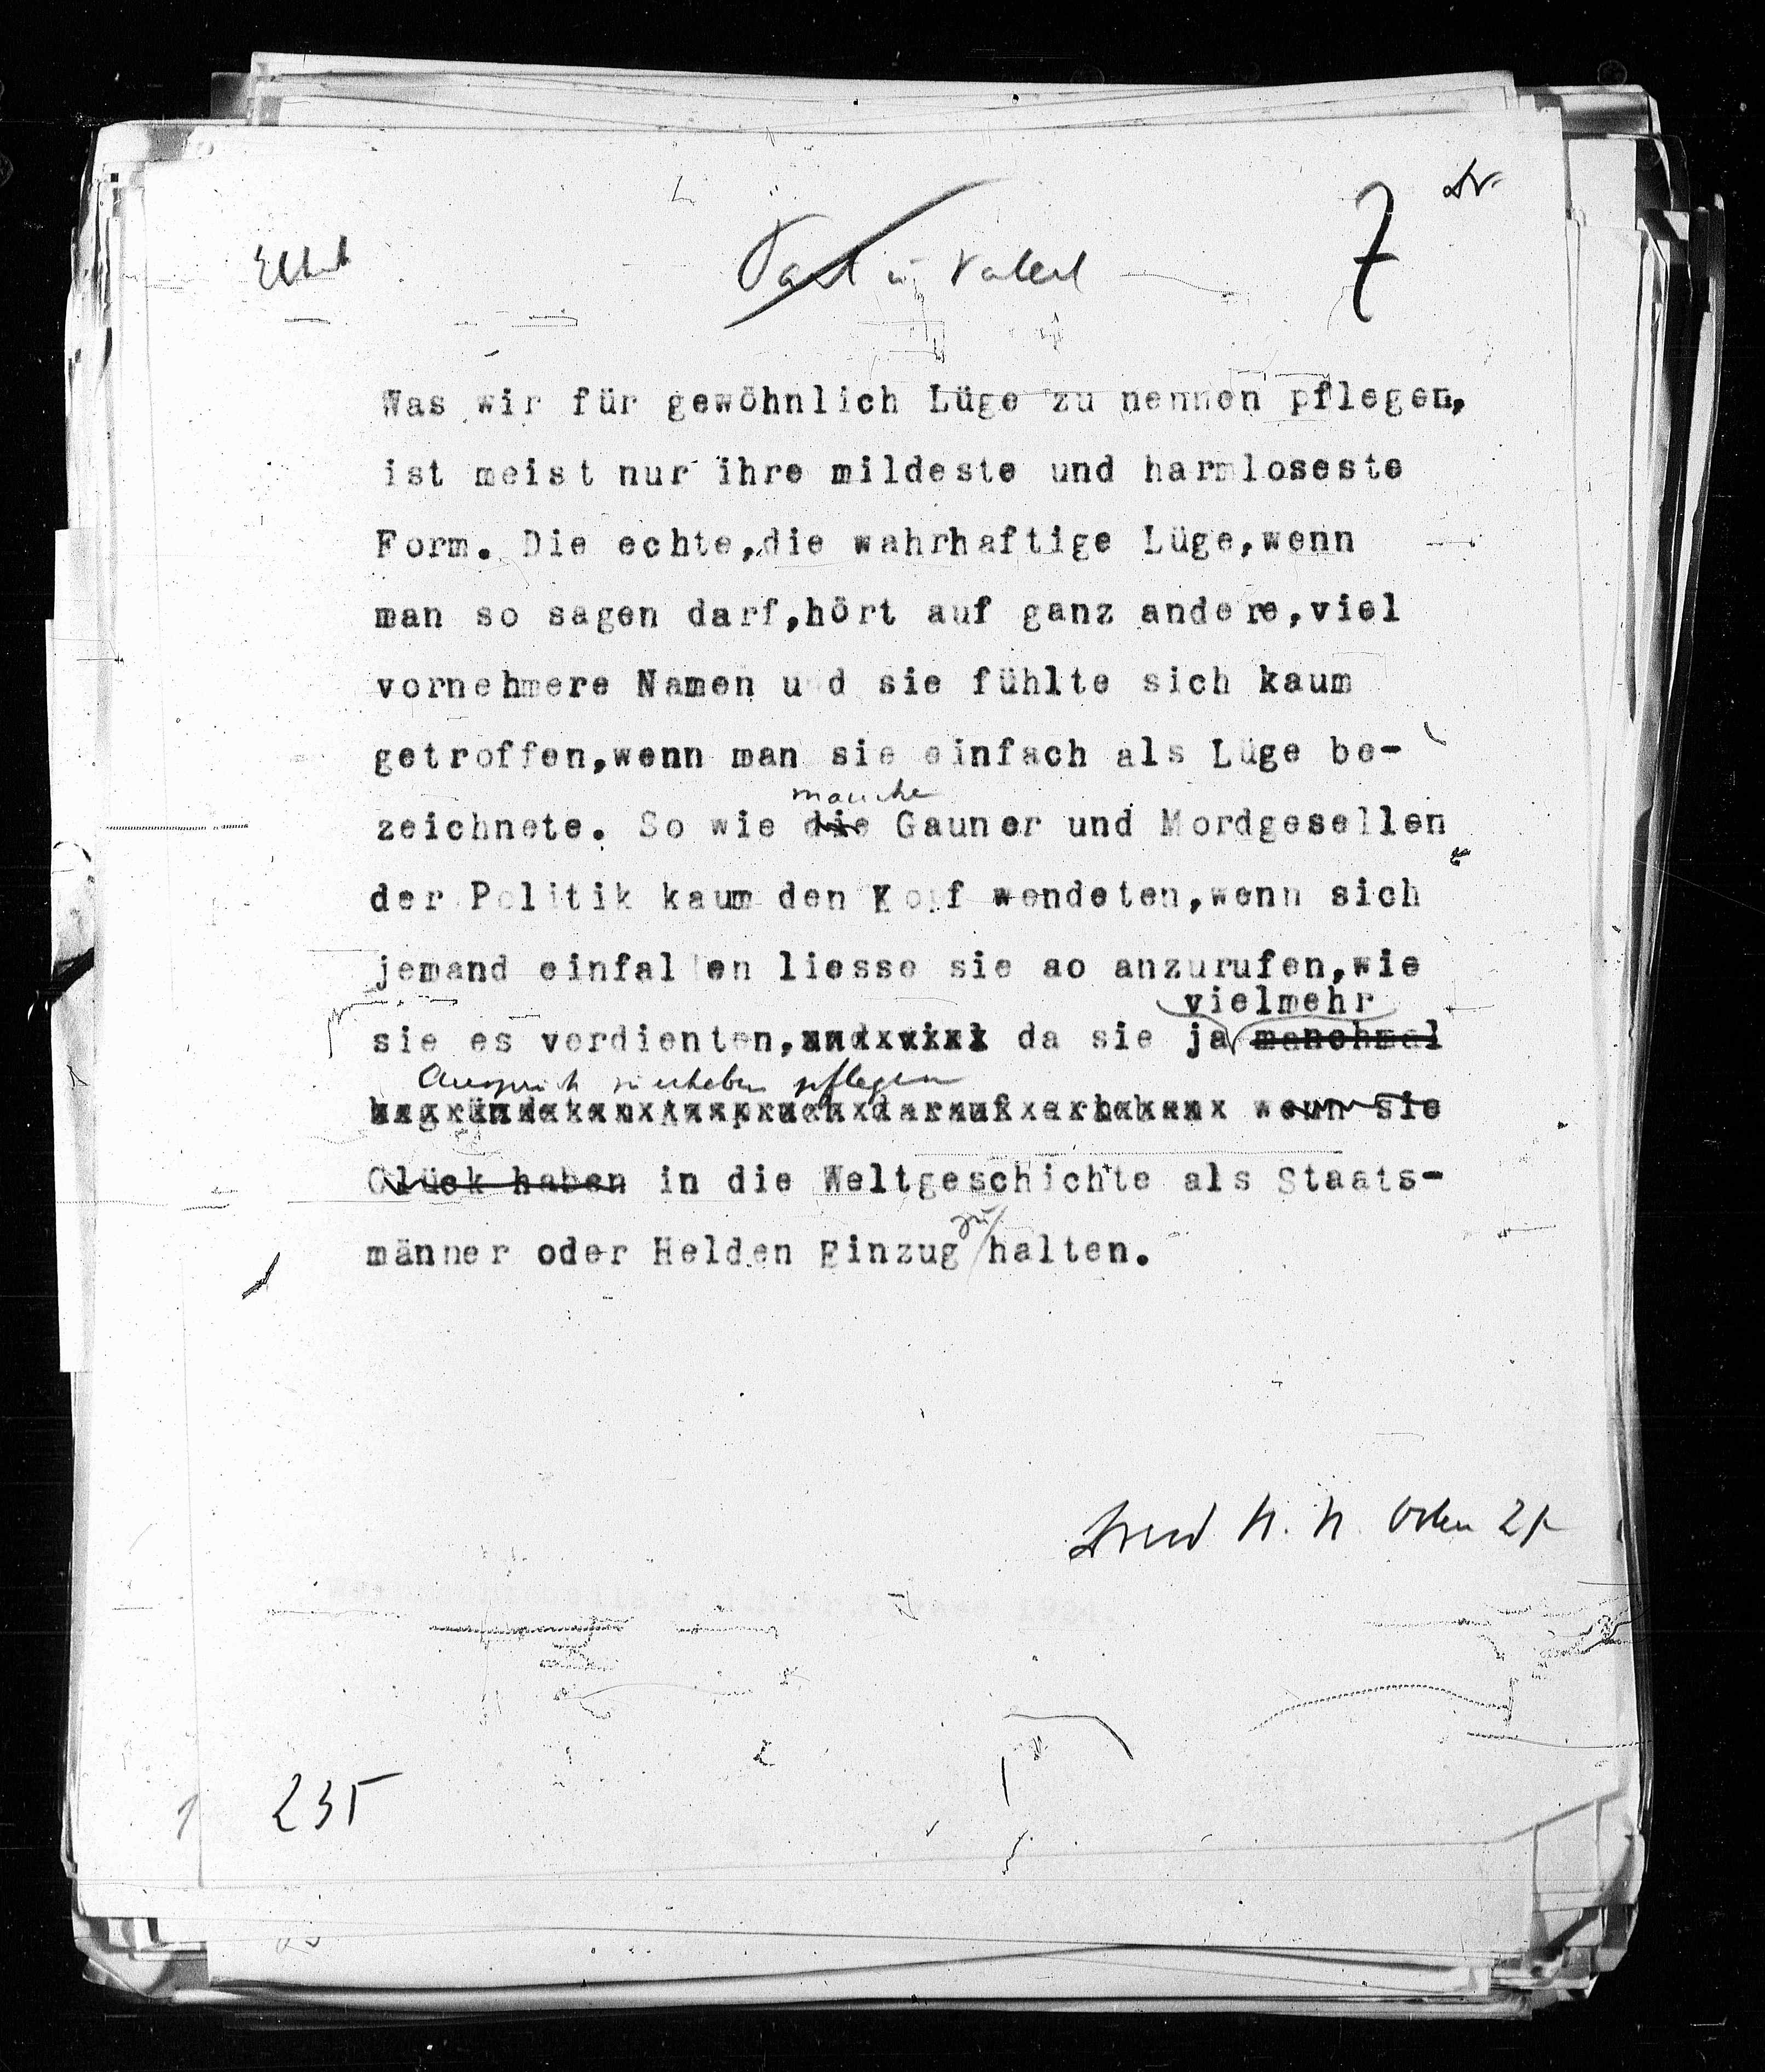 7
Was wir für gewöhnlich Lüge zu nennen pflegen,
ist meist nur ihre mildeste und harmloseste
Form. Die echte, die wahrhaftige Lüge,wenn
man so sagen darf,hört auf ganz andere,viel
vornehmere Namen und sie fühlte sich kaum
getroffen,wenn man sie einfach als Lüge be-
manche
zeichnete. So wie die Gauner und Mordgesellen
der Politik kaum den Kopf wendeten,wenn sich
jemand einfallen liesse sie ao anzurufen,wie
vielmehr
sie es verdienten, da sie ja manchmal
Anspruch zu erheben pflegen
wenn sie
Glück haben in die Weltgeschichte als Staats-
zu
männer oder Helden Einzug halten.
235